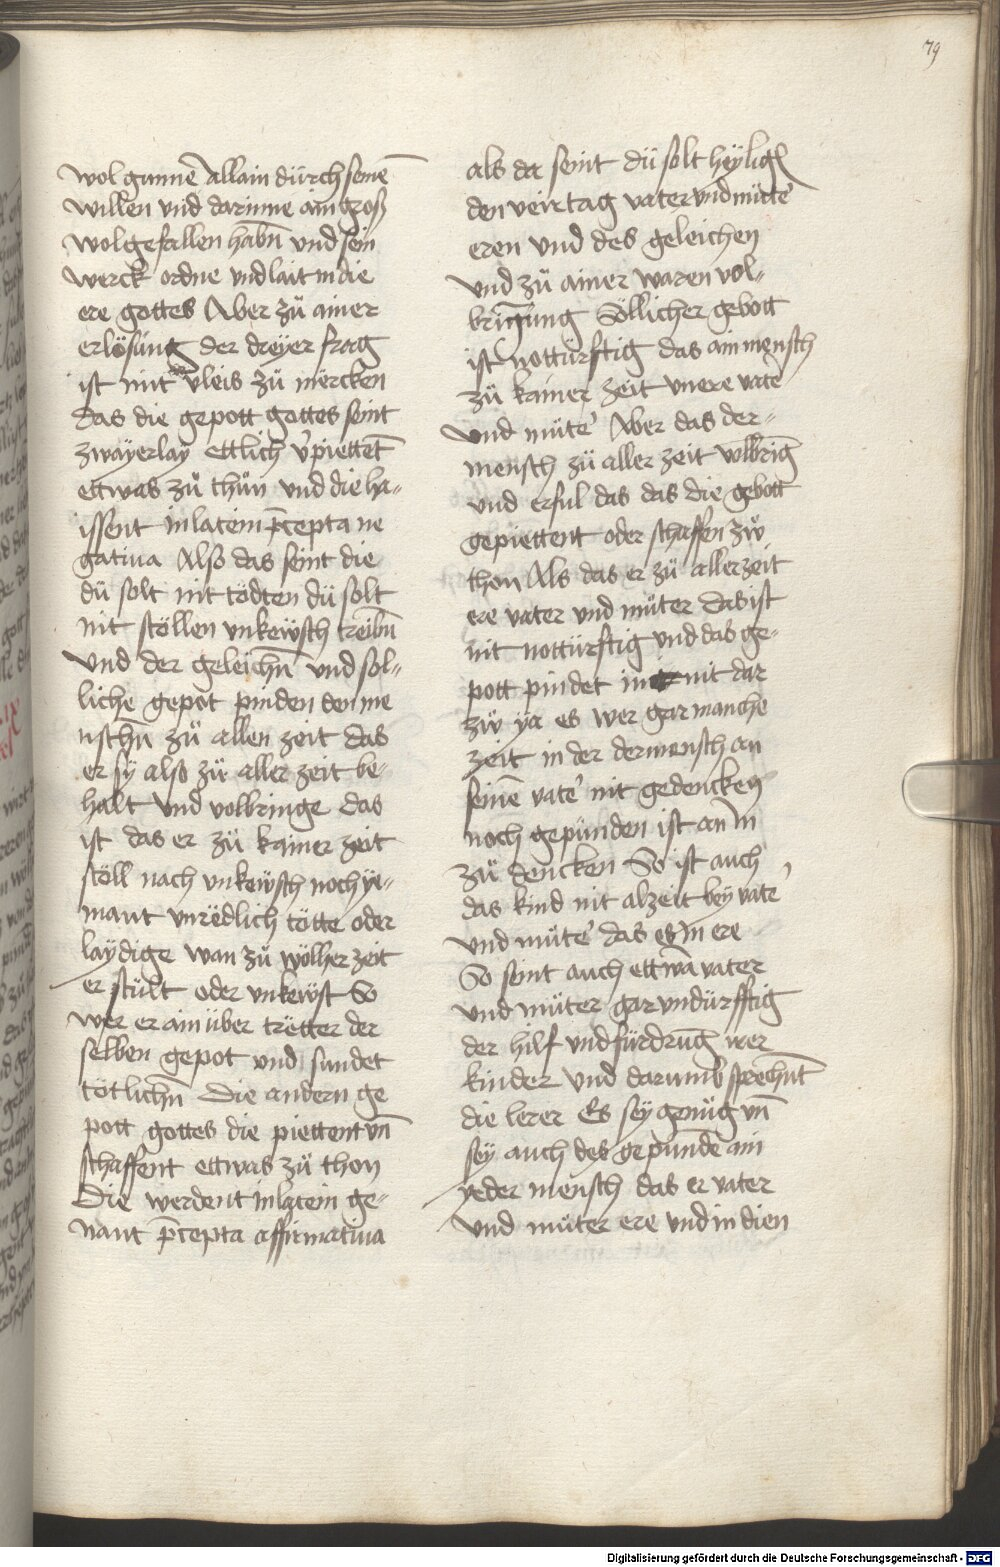 79
wol gunne Allain durch seinē
willen vnd darinne ain groß
wolgefallen habn̄ vnd sein
werck ordne vnd lait in die
ere gottes Aber zů ainer
erlösung der dreyer frag
ist mit vleis zů mërcken
das die gepott gottes seint
zwayerlay ettlich v̾piettēt
ettwas zů thůn vnd die ha-
issent in latein p̄cepta ne
gatiua Also das seint die
dü solt nit tödten dü solt
nit stöllen vnkeẅsch treibn̄
vnd der geleichn̄ vnd sol-
liche gepot pinden den me
nschn̄ zů allen zeit das
er sy also zů aller zeit be-
halt vnd volbringe das
ist das er zů kainer zeit
stöll nach vnkeẅsch noch ye-
mant vnrëdlich tötte oder
laydige wan zů wölher zeit
er stült oder vnkeẅst So
wer er ain über trëtter der
selben gepot vnd sundet
tötlichn̄ Die andern ge
pott gottes die piettent vn̄
schaffent ettwas zů thon
Die werdent in latein ge-
nant p̄cepta affirmatiua
als da seint dü solt heylign̄
den veirtag vater vnd můte͛
eren vnd des geleichen
vnd zů ainer waren vol-
bringūng Söllicher gebott
ist notturftig das ain mensch
zů kainer zeit vnere vate͛
vnd můte͛ Aber das der-
mensch zů aller zeit volbrinḡ
vnd erful das das die gebott
gepiettent oder schaffen zẅ
thon Als das er zů aller zeit
ere vater vnd můter das ist
nit nottürftig vnd das ge-
pott pindet in nit dar
zẅ ya es wer gar manche
zeit in der der mensch an
seinē vate͛ nit gedencken
noch gepunden ist an in
zů dencken So ist auch
das kind nit alzeit bey vate͛
vnd můte͛ das es in ere
So seint auch ettwā vater
vnd můter gar vndürfftig
der hilf vnd fürdrūg wer
kinder vnd darumb sprechn̄t
die lerer Es sey genůg vn̄
sey auch des gepunde ain
yeder mensch das er vater
vnd můter ere vnd in dien
Digitalisierung gefördert durch die Deutsche Forschungsgemeinschaft - DFG